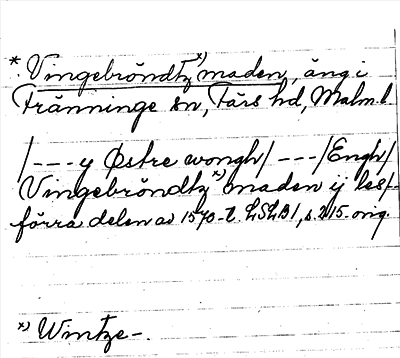 *. Vingebröndtz x) maden, äng i
Tränninge sn, Färs hd, Malm. l.
/--- y Østre wongh/ ---/Engh/
Vingebröndtz x) maden ij les/-
förra delen av 1570-t. LSLB 1, s. 215. orig.
x) Wintze-.